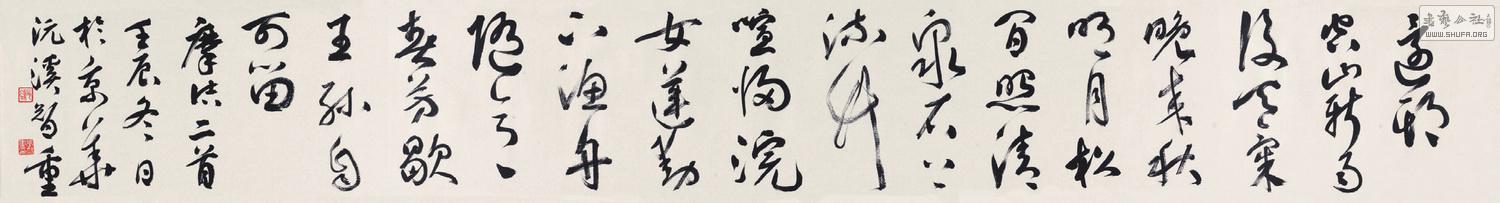 空山新雨
後天氣
晚來秋
明月松
間照清
泉石上
流竹
喧歸浣
女蓮動
下漁舟
隨意
春芳歇
王孫自
可留
摩詰二首
壬辰冬日
於京華
書藝公社
WWW.SHUFA.ORG